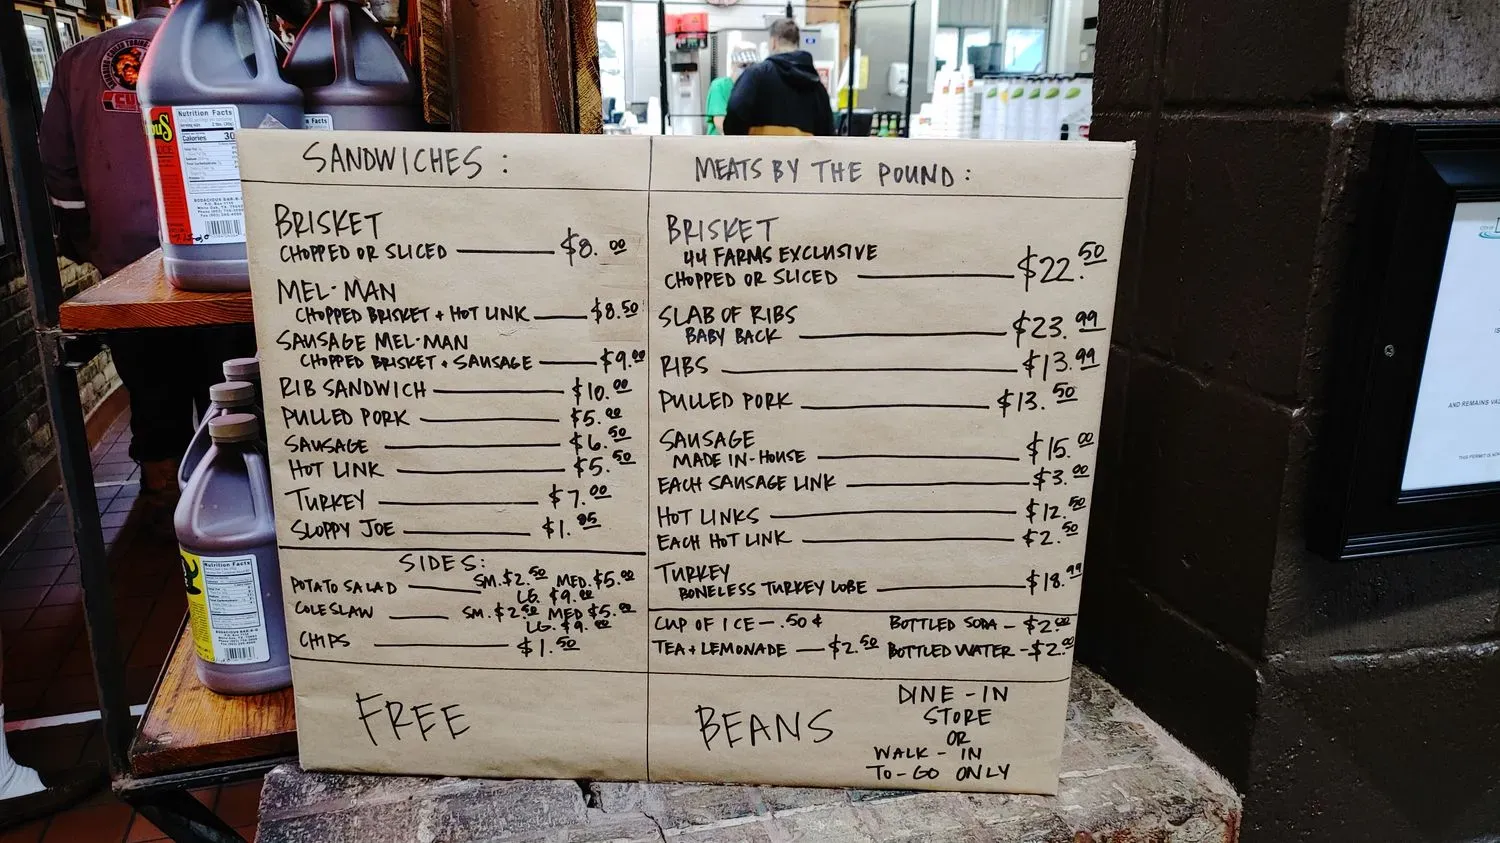 SANDWICHES :
BRISKET
CHOPPED OR SLICED $8.00
MEL-MAN
CHOPPED BRISKET + HOT LINK $8.50
SAUSAGE MEL-MAN
CHOPPED BRISKET + SAUSAGE $9.00
RIB SANDWICH $10.00
PULLED PORK $5.00
SAUSAGE $6.50
HOT LINK $5.50
TURKEY $7.00
SLOPPY JOE $1.95
SIDES:
POTATO SALAD SM. $2.50 MED. $5.00
LG. $9.00
COLESLAW SM. $2.50 MED $5.00
LG. $9.00
CHIPS $1.50
MEATS BY THE POUND :
BRISKET
44 FARMS EXCLUSIVE
CHOPPED OR SLICED $22.50
SLAB OF RIBS
BABY BACK $23.99
RIBS $13.99
PULLED PORK $13.50
SAUSAGE
MADE IN-HOUSE $15.00
EACH SAUSAGE LINK $3.00
HOT LINKS $12.50
EACH HOT LINK $2.50
TURKEY
BONELESS TURKEY LOBE $18.99
CUP OF ICE - .50¢ BOTTLED SODA - $2.00
TEA + LEMONADE - $2.50 BOTTLED WATER - $2.00
FREE BEANS
DINE-IN
STORE
OR
WALK-IN
TO-GO ONLY
Nutrition Facts
Calories 30
BODACIOUS BAR-B-Q
Nutrition Facts
BODACIOUS BAR-B-Q
AND REMAINS VAL